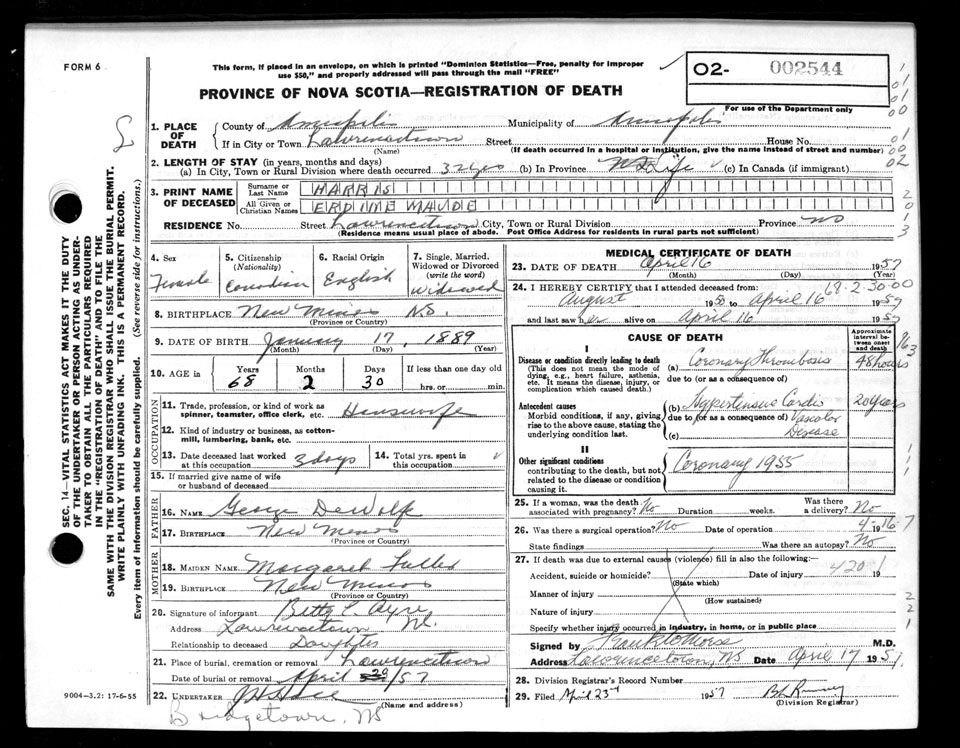 FORM 6
This form, if placed in an envelope, on which is printed "Dominion Statistics—Free, penalty for improper
use $50," and properly addressed will pass through the mail "FREE"
O2- 002544
For use of the Department only
PROVINCE OF NOVA SCOTIA—REGISTRATION OF DEATH
1. PLACE OF DEATH { County of Annapolis Municipality of Annapolis
If in City or Town Lawrencetown Street House No.
(Name) (If death occurred in a hospital or institution, give the name instead of street and number)
2. LENGTH OF STAY (in years, months and days)
(a) In City, Town or Rural Division where death occurred 32 yrs (b) In Province Life (c) In Canada (if immigrant)
3. PRINT NAME OF DECEASED { Surname or Last Name HARRIS
All Given or Christian Names ERDINE MAUDE
RESIDENCE No. Street Lawrencetown City, Town or Rural Division Province NS
(Residence means usual place of abode. Post Office Address for residents in rural parts not sufficient)
4. Sex
Female
5. Citizenship
(Nationality)
Canadian
6. Racial Origin
English
7. Single, Married,
Widowed or Divorced
(write the word)
Widowed
8. BIRTHPLACE New Minas N.S.
(Province or Country)
9. DATE OF BIRTH January 17, 1889
(Month) (Day) (Year)
10. AGE in Years Months Days If less than one day old
68 2 30 hrs. or min.
OCCUPATION
11. Trade, profession, or kind of work as
spinner, teamster, office clerk, etc. Housewife
12. Kind of industry or business, as cotton-
mill, lumbering, bank, etc.
13. Date deceased last worked at this occupation 3 days
14. Total yrs. spent in this occupation
15. If married give name of wife
or husband of deceased
FATHER
16. NAME George DeWolfe
17. BIRTHPLACE New Minas
(Province or Country)
MOTHER
18. MAIDEN NAME Margaret Fuller
19. BIRTHPLACE New Minas
(Province or Country)
20. Signature of informant Betty E. Ayre
Address Lawrencetown NS.
Relationship to deceased Daughter
21. Place of burial, cremation or removal Lawrencetown
Date of burial or removal April 20/57
22. UNDERTAKER
(Name and address)
Bridgetown, NS
9004—3.2: 17-6-55
SEC. 14—VITAL STATISTICS ACT MAKES IT THE DUTY
OF THE UNDERTAKER OR PERSON ACTING AS UNDER-
TAKER TO OBTAIN ALL THE PARTICULARS REQUIRED
IN THE "REGISTRATION OF DEATH" AND TO FILE THE
SAME WITH THE DIVISION REGISTRAR WHO SHALL ISSUE THE BURIAL PERMIT.
WRITE PLAINLY WITH UNFADING INK. THIS IS A PERMANENT RECORD.
Every item of information should be carefully supplied. (See reverse side for instructions.)
MEDICAL CERTIFICATE OF DEATH
23. DATE OF DEATH April 16 1957
(Month) (Day) (Year)
24. I HEREBY CERTIFY that I attended deceased from: 68-2-30-00
August 1953 to April 16 1957
and last saw her alive on April 16 1957
CAUSE OF DEATH
Approximate
interval be-
tween onset
and death
I
Disease or condition directly leading to death
(This does not mean the mode of
dying, e.g., heart failure, asthenia,
etc. It means the disease, injury, or
complication which caused death.)
(a) Coronary Thrombosis 48 hours
due to (or as a consequence of)
Antecedent causes
Morbid conditions, if any, giving
rise to the above cause, stating the
underlying condition last.
(b) Hypertensive Cardio 20 years
due to (or as a consequence of) Vascular
(c) Disease
II
Other significant conditions
contributing to the death, but not
related to the disease or condition
causing it.
Coronary 1955
25. If a woman, was the death associated with pregnancy? No Duration weeks. Was there a delivery? No
26. Was there a surgical operation? No Date of operation 19
State findings Was there an autopsy? No
27. If death was due to external causes (violence) fill in also the following:—
Accident, suicide or homicide? Date of injury 19
(State which)
Manner of injury
(How sustained)
Nature of injury
Specify whether injury occurred in industry, in home, or in public place
Signed by Frank R Morse M.D.
Address Lawrencetown, NS Date April 17 1957
28. Division Registrar's Record Number
29. Filed April 23rd 1957
(Division Registrar)